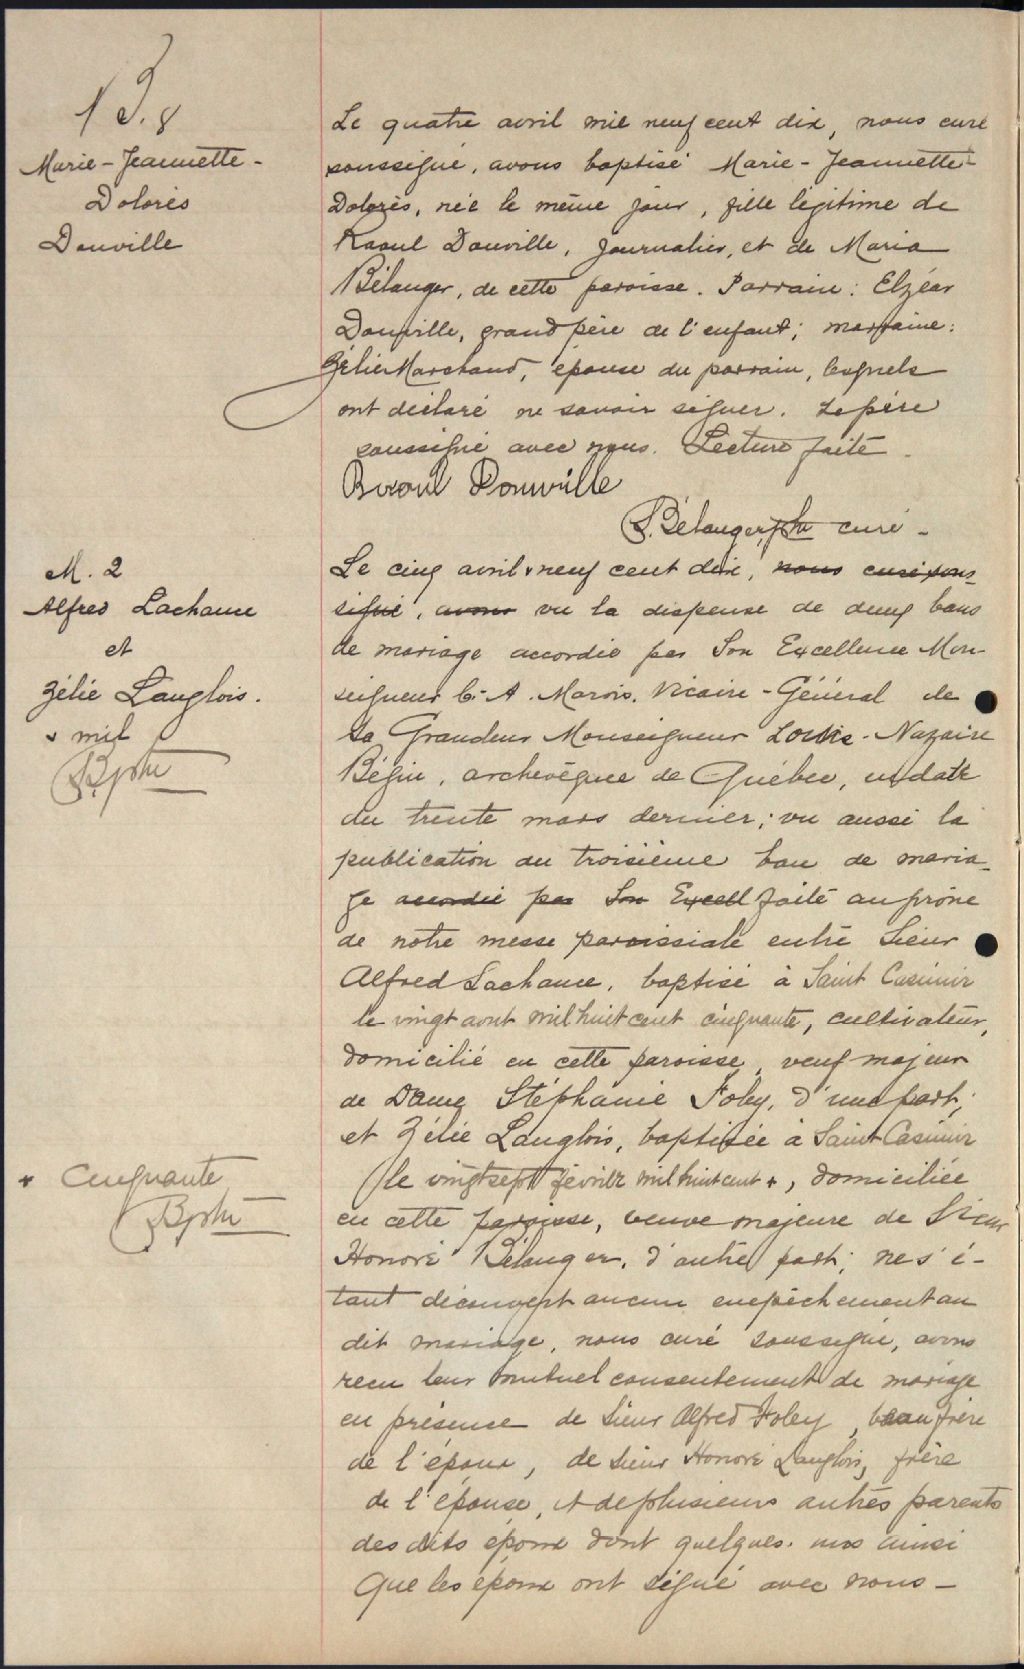 B. 8
Marie-Jeannette-
Dolorès
Douville
Le quatre avril mil neuf cent dix, nous curé
soussigné, avons baptisé Marie-Jeannette-
Dolorès, née le même jour, fille légitime de
Raoul Douville, journalier, et de Maria
Bélanger, de cette paroisse. Parrain: Elzéar
Douville, grand père de l'enfant; marraine:
Zélie Marchand, épouse du parrain, lesquels
ont déclaré ne savoir signer. Le père
soussigné avec nous. Lecture faite.
Raoul Douville
Bélanger, ptre curé-
M. 2
Alfred Lachance
et
Zélie Langlois.
v mil
B, ptre
Le cinq avril v neuf cent dix, nous curé sous-
signé, avons vu la dispense de deux bans
de mariage accordée par Son Excellence Mon-
seigneur C.-A. Marois, Vicaire-Général de
Sa Grandeur Monseigneur Louis-Nazaire
Bégin, archevêque de Québec, en date
du trente mars dernier; vu aussi la
publication du troisième ban de maria-
ge accordée par Son Excell faite au prône
de notre messe paroissiale entre Sieur
Alfred Lachance, baptisé à Saint Casimir
le vingt aout mil huit cent cinquante, cultivateur,
domicilié en cette paroisse, veuf majeur
de Dame Stéphanie Foley, d'une part;
et Zélie Langlois, baptisée à Saint Casimir
le vingt sept février mil huit cent +, domiciliée
en cette paroisse, veuve majeure de Sieur
Honoré Bélanger, d'autre part; ne s'é-
tant découvert aucun empêchement au
dit mariage, nous curé soussigné, avons
recu leur mutuel consentement de mariage
en présence de Sieur Alfred Foley, beau frère
de l'époux, de Sieur Honoré Langlois, frère
de l'épouse, et de plusieurs autres parents
des dits époux dont quelques-uns ainsi
que les époux ont signé avec nous-
+ cinquante
B, ptre